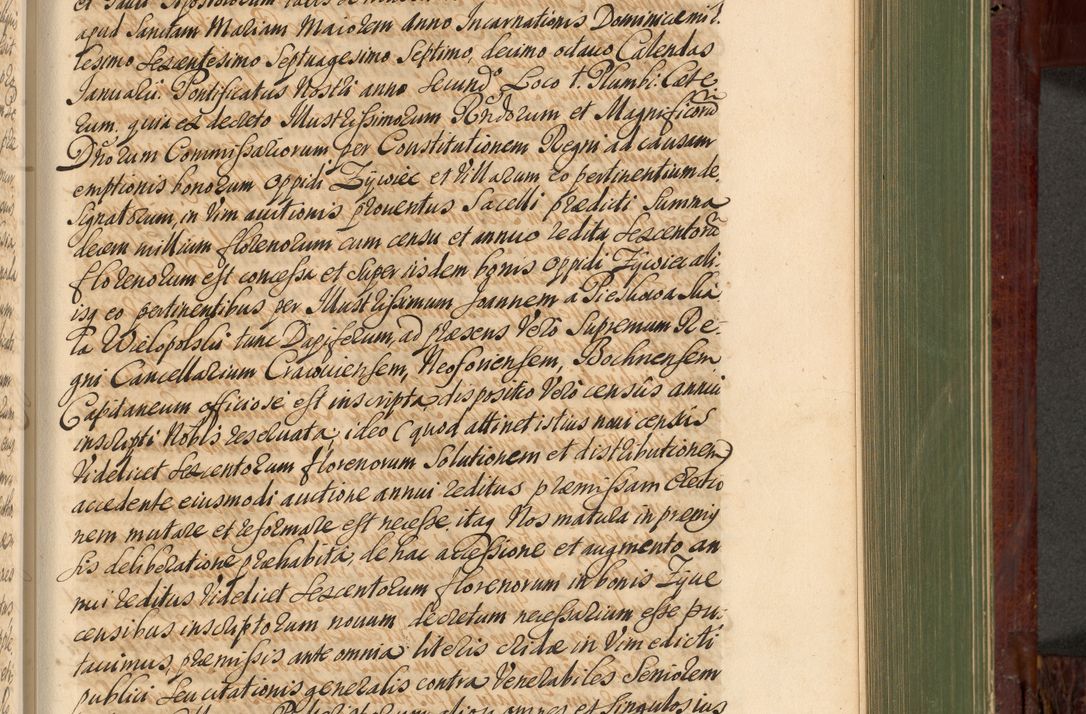 apud Sanctam Mariam Maiorem Anno Incarnationis Dominicæ mil.
lesimo Sexcentesimo Septuagesimo Septimo, decimo octauo Calendas
Januarii. Pontificatus Nostri anno Secundo. Loco † Plumbi. Cæte
rum. quia ex decreto Illustrissimorum Rndorum et Magnificorum
Dnorum Commissariorum per Constitutionem Regni ad causam
emptionis bonorum Oppidi Zywiec et Villarum eo pertinentium de.
signatorum, in Vim auctionis prouentus Sacelli prædicti Summa
decem millium florenorum cum censu et annuo reditu Sexcentorum
florenorum est concessa et Super iisdem bonis Oppidi Zywiec ali
isq eo pertinentibus per Illustrissimum Joannem a Pieskowa Ska
ła Wielopolski tunc Dapiferum, ad præsens Vero Supremum Re-
gni Cancellarium Cracouiensem, Neoforiensem, Bochnensem
Capitaneum officiose est inscripta, dispositio Vero censûs annui
inscripti Nobis reseruata, ideo (quod attinet istius noui censûs
Videlicet Sexcentorum florenorum Solutionem et distributionem)
accedente eiusmodi auctione annui reditus præmissam Erectio
nem mutare et reformare est necesse itaq Nos matura in præmis
sis deliberatione præhabita, de hac accessione et augmento an
nui reditus Videlicet Sexcentorum florenorum in bonis Zywe
censibus inscriptorum nouum decretum necessarium esse pu-
tauimus, præmissis ante omnia literis cridæ in Vim edicti
publici Seu citationis generalis contra Venerabiles Seniorem
omnes et Singulos ius